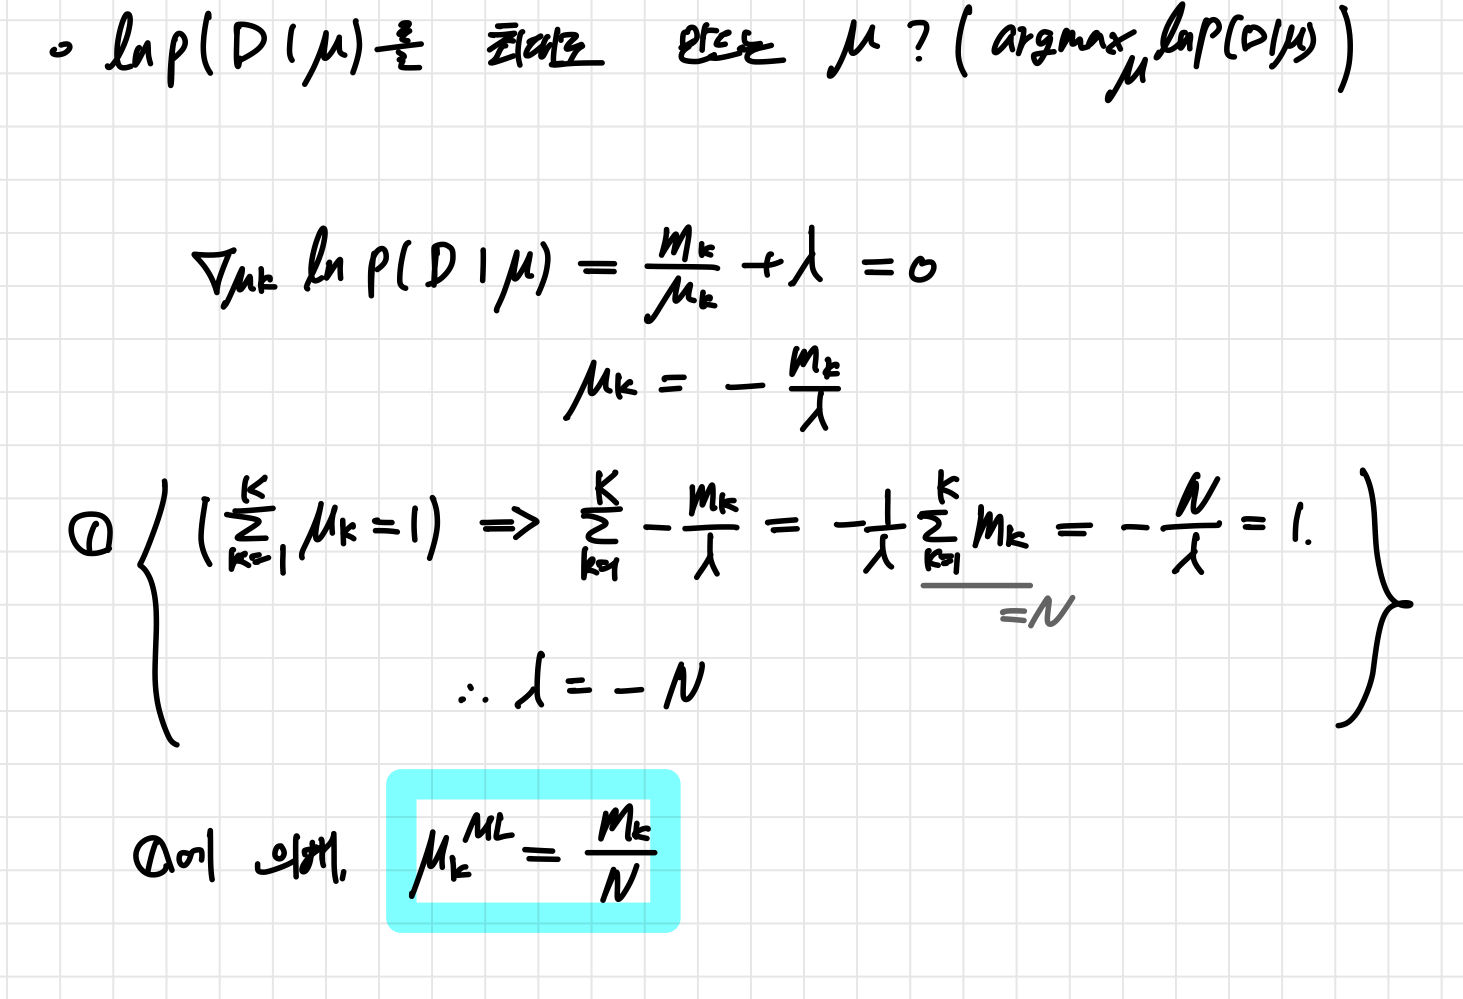 o ln p(D|μ)를 최대로 만드는 μ? (argmax_μ ln p(D|μ))
∇_μk ln p(D|μ) = m_k/μ_k + λ = 0
μ_k = - m_k/λ
① { (∑_{k=1}^{K} μ_k = 1) => ∑_{k=1}^{K} - m_k/λ = - 1/λ ∑_{k=1}^{K} m_k = - N/λ = 1. }
= N
∴ λ = - N
①에 의해, μ_k^{ML} = m_k/N